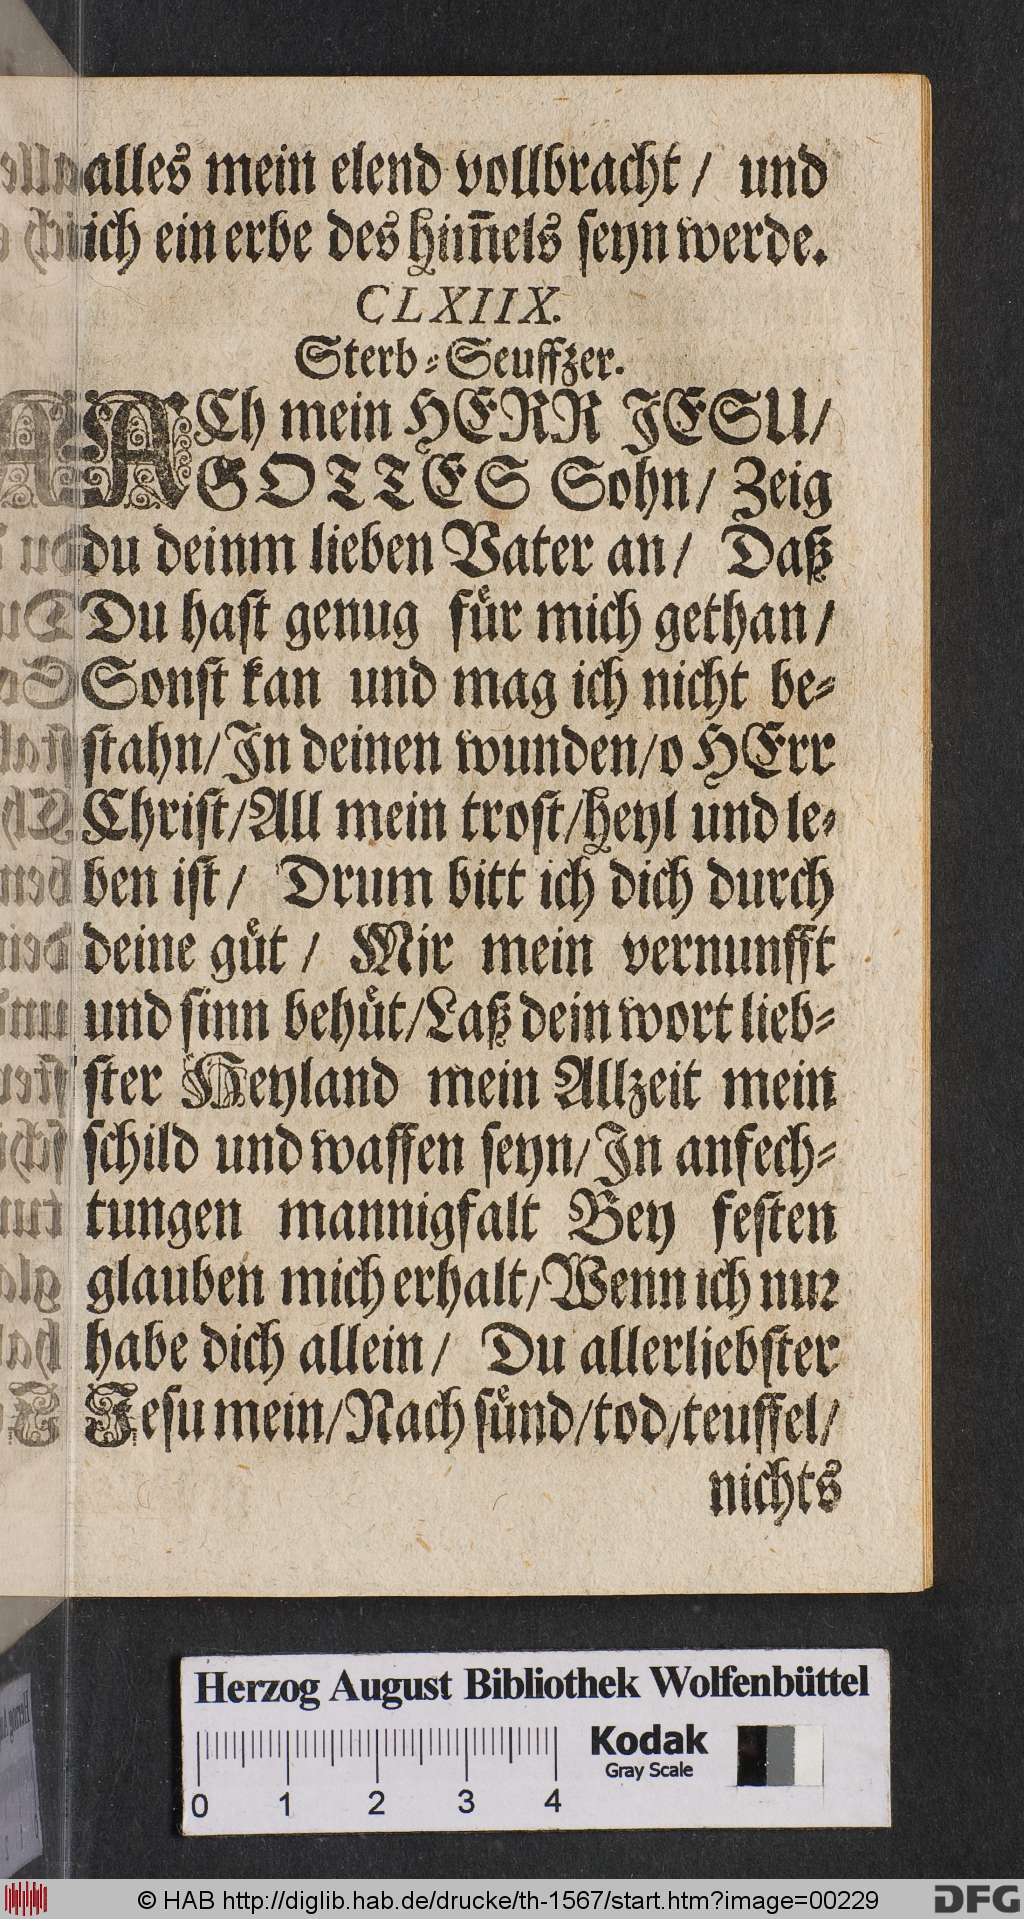 alles mein elend vollbracht / und
ich ein erbe des him̃els seyn werde.
CLXIIX.
Sterb-Seuffzer.
ACh mein HERR JESU/
GOTTES Sohn / Zeig
du deinm lieben Vater an / Daß
Du hast genug fuͤr mich gethan /
Sonst kan und mag ich nicht be-
stahn / In deinen wunden / o HErr
Christ / All mein trost / heyl und le-
ben ist / Drum bitt ich dich durch
deine guͤt / Mir mein vernunfft
und sinn behuͤt / Laß dein wort lieb-
ster Heyland mein Allzeit mein
schild und waffen seyn / In anfech-
tungen mannigfalt Bey festen
glauben mich erhalt / Wenn ich nur
habe dich allein / Du allerliebster
Jesu mein / Nach suͤnd / tod / teuffel /
nichts
Herzog August Bibliothek Wolfenbüttel
Kodak
Gray Scale
0 1 2 3 4
© HAB http://diglib.hab.de/drucke/th-1567/start.htm?image=00229
DFG